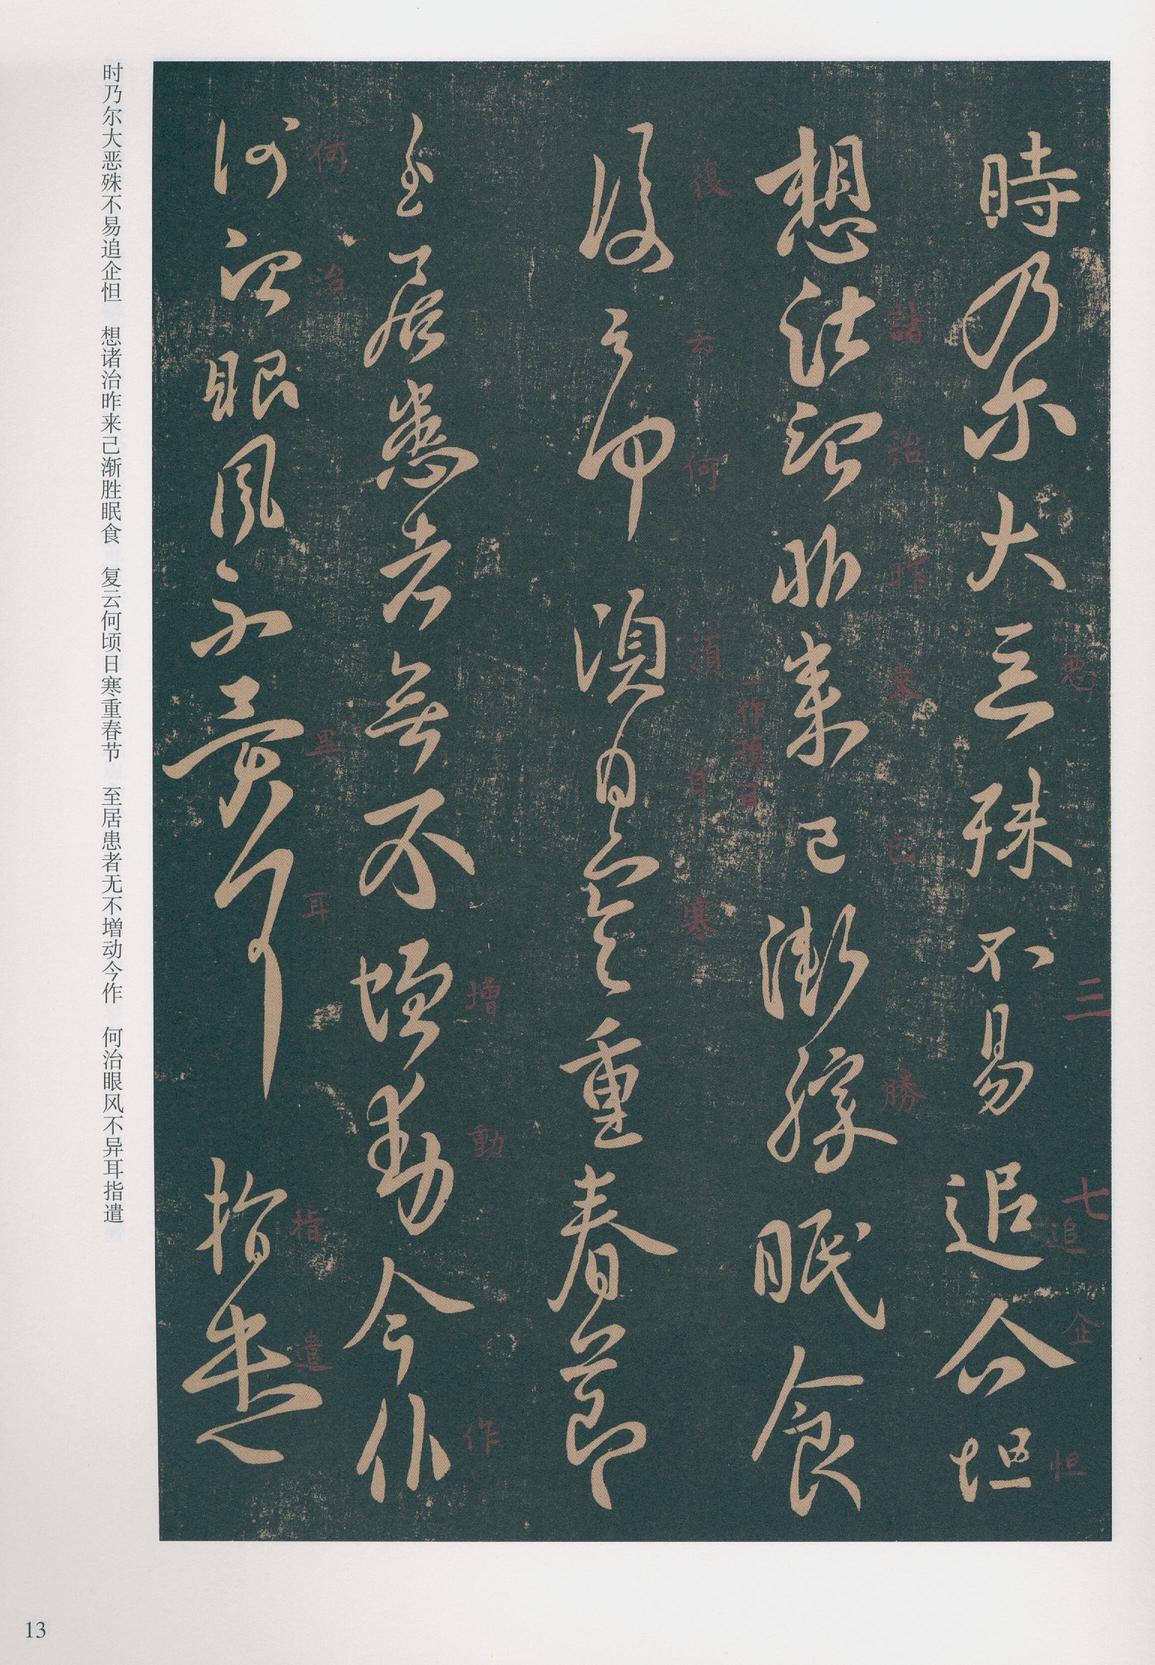 時乃尔大恶殊不易追企怛
想諸治昨来已漸勝眠食
復云何須日寒重春節
至居患者無不増動今作
何治眼風不異耳指遣
悪
三
七
追
企
怛
諸
治
昨
来
已
勝
一作項日
復
云
何
須
自
寒
増
動
作
何
治
異
耳
指
遣
时乃尔大恶殊不易追企怛 想诸治昨来己渐胜眠食 复云何顷日寒重春节 至居患者无不增动今作 何治眼风不异耳指遣
13